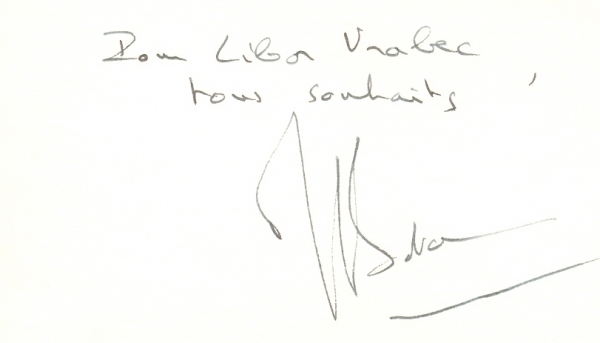 Pour Libor Vrabec
tous souhaits